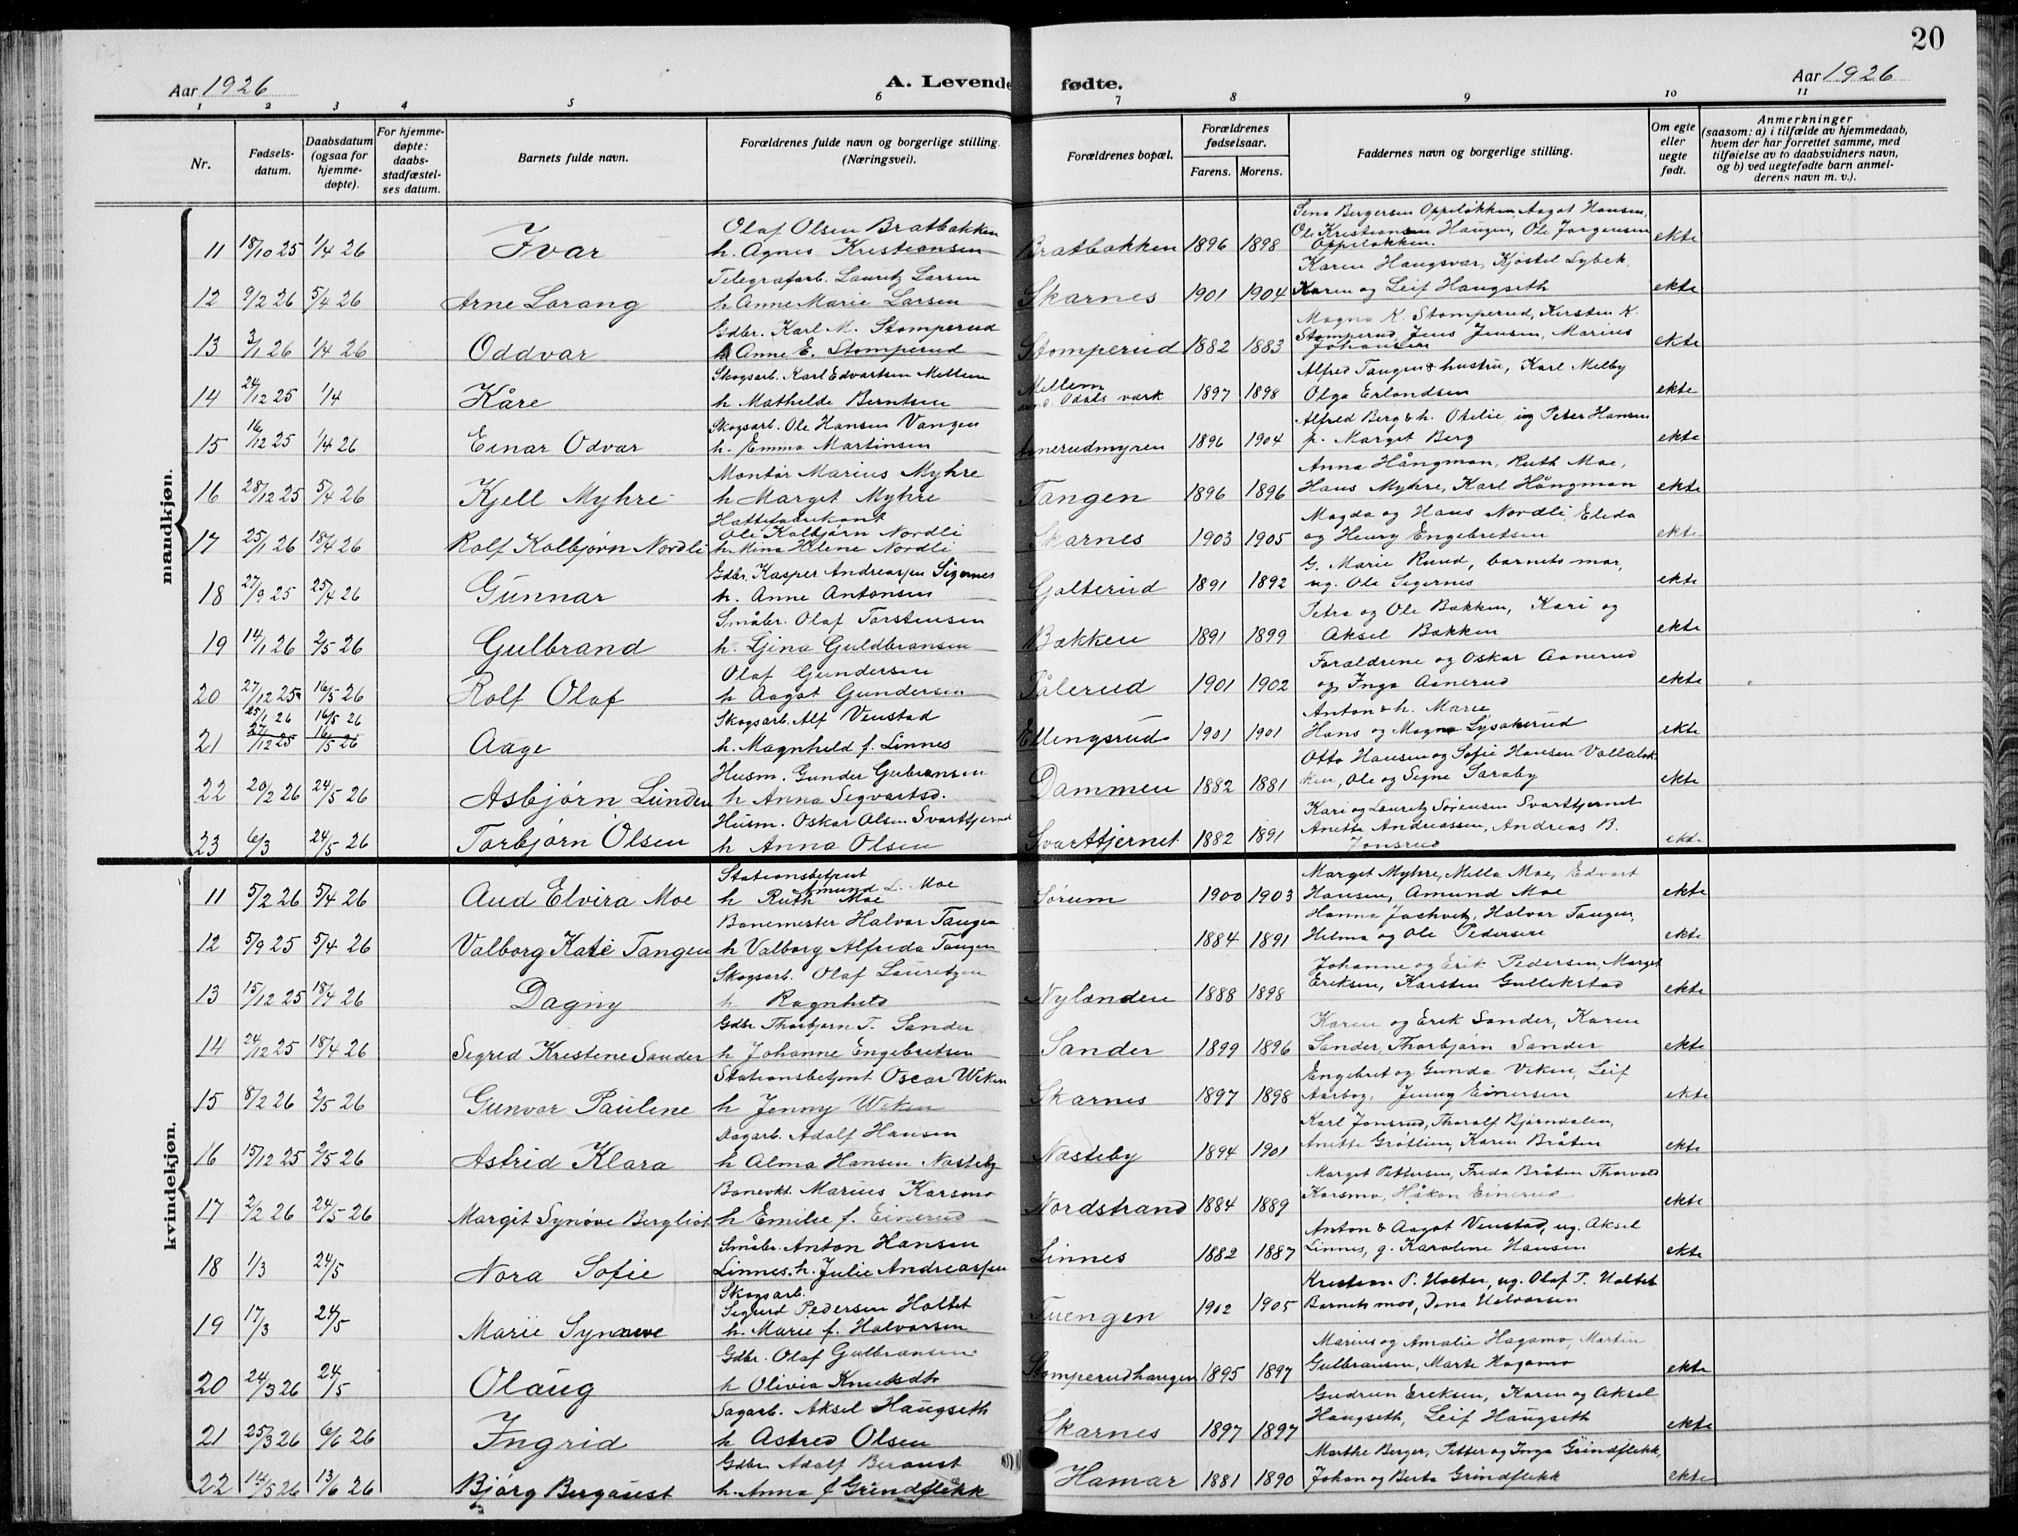 20
Aar 1926
A. Levende fødte.
Aar 1926
1 2 3 4 5 6 7 8 9 10 11
Nr.
Fødsels-datum.
Daabsdatum (ogsaa for hjemme-døpte).
For hjemme-døpte: daabs-stadfæstel-ses datum.
Barnets fulde navn.
Forældrenes fulde navn og borgerlige stilling. (Næringsvei).
Forældrenes bopæl.
Forældrenes fødselsaar.
Farens. Morens.
Faddernes navn og borgerlige stilling.
Om egte eller uegte født.
Anmerkninger (saasom: a) i tilfælde av hjemmedaab, hvem der har forrettet samme, med tilføielse av to daabsvidners navn, og b) ved uegtefødte barn anmelderens navn m. v.).
mandkjøn.
11 18/10 25 1/4 26 Ivar Olaf Olsen Bratbakken h. Agnes Kristiansen Bratbakken 1896 1898 Sena Bergersen Oppiløkken, Aagot Hansen, Ole Kristiansen Haugen, Ole Jørgensen Oppiløkken. ekte
12 9/2 26 5/4 26 Arne Lorang Telegrafarb. Lauritz Larsen h. Anne Marie Larsen Skarnes 1901 1904 Karen Haugsvær, Kjøstel Lybek Karen og Leif Haugseth ekte
13 3/1 26 1/4 26 Oddvar Gdbr. Karl M. Stomperud h Anne E. Stomperud Stomperud 1882 1883 Magna K. Stomperud, Kirsten K. Stomperud, Jens Jensen, Marius Johansen ekte
14 24/12 25 1/4 Kåre Skogsarb. Karl Edvartsen Mellem h Mathilde Berntsen Mellem Odals værk 1897 1898 Alfred Tangen & hustru, Karl Melby Olga Erlandsen ekte
15 16/12 25 1/4 26 Einar Odvar Skogsarb. Ole Hansen Vangen h. Emma Martinsen Aanerudmyren 1896 1904 Alfred Berg & h. Otelie, ug Peter Hansen p. Marget Berg ekte
16 28/12 25 5/4 26 Kjell Myhre Montør Marius Myhre h Marget Myhre Tangen 1896 1896 Anna Hångman, Ruth Moe, Hans Myhre, Karl Hångman ekte
17 25/1 26 18/4 26 Rolf Kolbjørn Nordli Hattefabrikant Ole Kolbjørn Nordli h. Mina Helene Nordli Skarnes 1903 1905 Magda og Hans Nordli, Elida og Henry Engebretsen ekte
18 27/9 25 25/4 26 Gunnar Gdbr. Kasper Andreassen Sigernes h. Anne Antonsen Galterud 1891 1892 G. Marie Ruud, barnets mor, ug. Ole Sigernes ekte
19 14/1 26 2/5 26 Gulbrand Småbr. Olaf Torstensen h. Gina Guldbransen Bakken 1891 1899 Petra og Ole Bakken, Kari og Aksel Bakken ekte
20 27/12 25 16/5 26 Rolf Olaf Olaf Gundersen h Aagot Gundersen Pålerud 1901 1902 Forældrene og Oskar Aanerud og Inga Aanerud ekte
21 25/1 26 16/5 26 27/12 25 16/5 26 Aage Skogsarb. Alf Venstad h. Magnhild f. Linnes Ellingsrud 1901 1901 Anton & h. Marie Hans og Magna Lysakerud ekte
22 20/2 26 24/5 26 Asbjørn Lunden Husm. Gunder Gubransen h Anna Segvartsd. Dammen 1882 1881 Otto Hansen og Sofie Hansen Vallaløkken, Ole og Signe Saraby ekte
23 6/3 24/5 26 Torbjørn Olsen Husm. Oskar Olsen Svarttjernet h Anna Olsen Svarttjernet 1882 1891 Kari og Lauritz Sørensen Svarttjernet Anette Andreassen, Andreas B. Jonsrud ekte
kvindekjøn.
11 5/2 26 5/4 26 Aud Elvira Moe Stationsbetjent Amund L. Moe h Ruth Moe Sørum 1900 1903 Marget Myhre, Milla Moe, Edvart Hansen, Amund Moe ekte
12 5/9 25 5/4 26 Valborg Kate Tangen Banemester Halvor Tangen h Valborg Alfreda Tangen 1884 1891 Hanna Jachvitz, Halvor Tangen, Hilma og Ole Pedersen ekte
13 15/12 25 18/4 26 Dagny Skogsarb. Olaf Lauretzen h Ragnhild Nylænden 1888 1898 Johanne og Erik Pedersen, Marget Eriksen, Karsten Gullikstad ekte
14 24/12 25 18/4 26 Segred Krestene Sander Gdbr Thorbjørn T. Sander h Johanne Engebretsen Sander 1899 1896 Karen og Erik Sander, Karen Sander, Thorbjørn Sander ekte
15 8/2 26 2/5 26 Gunvor Paulene Stationsbetjent Oscar Weken h Jenny Weken Skarnes 1897 1898 Engebret og Gunda Viken, Leif Aarbog, Jenny Einersen ekte
16 15/12 25 2/5 26 Astrid Klara Dagarb. Adolf Hansen h Alma Hansen Næsteby Næsteby 1894 1901 Karl Jonsrud, Thoralf Bjørndalen, Anette Grøtlien, Karen Bråten ekte
17 2/2 26 24/5 26 Margit Synøve Bergliot Banevkt. Marius Karsmo h Emilie f. Einerud Nordstrand 1884 1889 Marget Pettersen, Freda Bråten Thorvald Karsmo, Håkon Einerud ekte
18 1/3 24/5 Nora Sofie Småbr. Anton Hansen Linnes. h. Julie Andreassen Linnes 1882 1887 Anton & Aagot Venstad, ug. Aksel Linnes, g. Karoline Hansen ekte
19 17/3 24/5 Marie Synnøve Skogsarb. Sigurd Pedersen Holtet h. Marie f. Halvorsen Tuengen 1902 1905 Kristian P. Holter, ug. Olaf P. Holtet Barnets mor, Dina Halvorsen
20 24/3 26 24/5 Olaug Gdbr. Olaf Gulbransen h Olivia Knudsdtr Stomperudhaugen 1895 1897 Marius og Amalie Hagamo, Martin Gulbransen, Marte Hagamo ekte
21 25/3 26 6/6 26 Ingrid Sagarb. Aksel Haugseth h Astred Olsen Skarnes 1897 1897 Gudrun Ereksen, Karen og Aksel Haugseth, Leif Haugseth ekte
22 14/5 26 13/6 26 Bjørg Bergqust Gdbr Adolf h. Anna f Grindflekk Hamar 1881 1890 Marthe Berger, Petter og Inga Grindflekk, Johan og Berta Grindflekk ekte